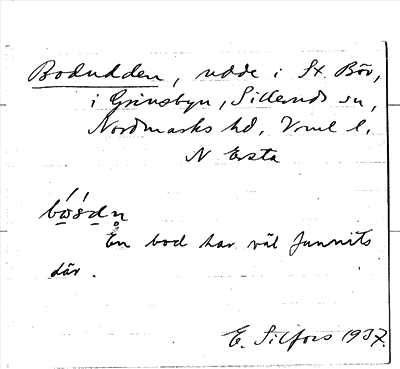 Bodudden, udde i St. Bör,
i Grinsbyn, Silleruds sn,
Nordmarks hd, Vrml l.
N Ersta
En bod har väl funnits
där.
E. Silfors 1937.